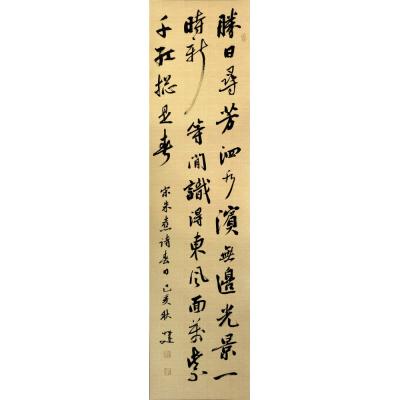 勝日尋芳泗水濱無邊光景一
時新等閒識得東風面萬紫
千紅總是春
宋朱熹詩春日己亥秋